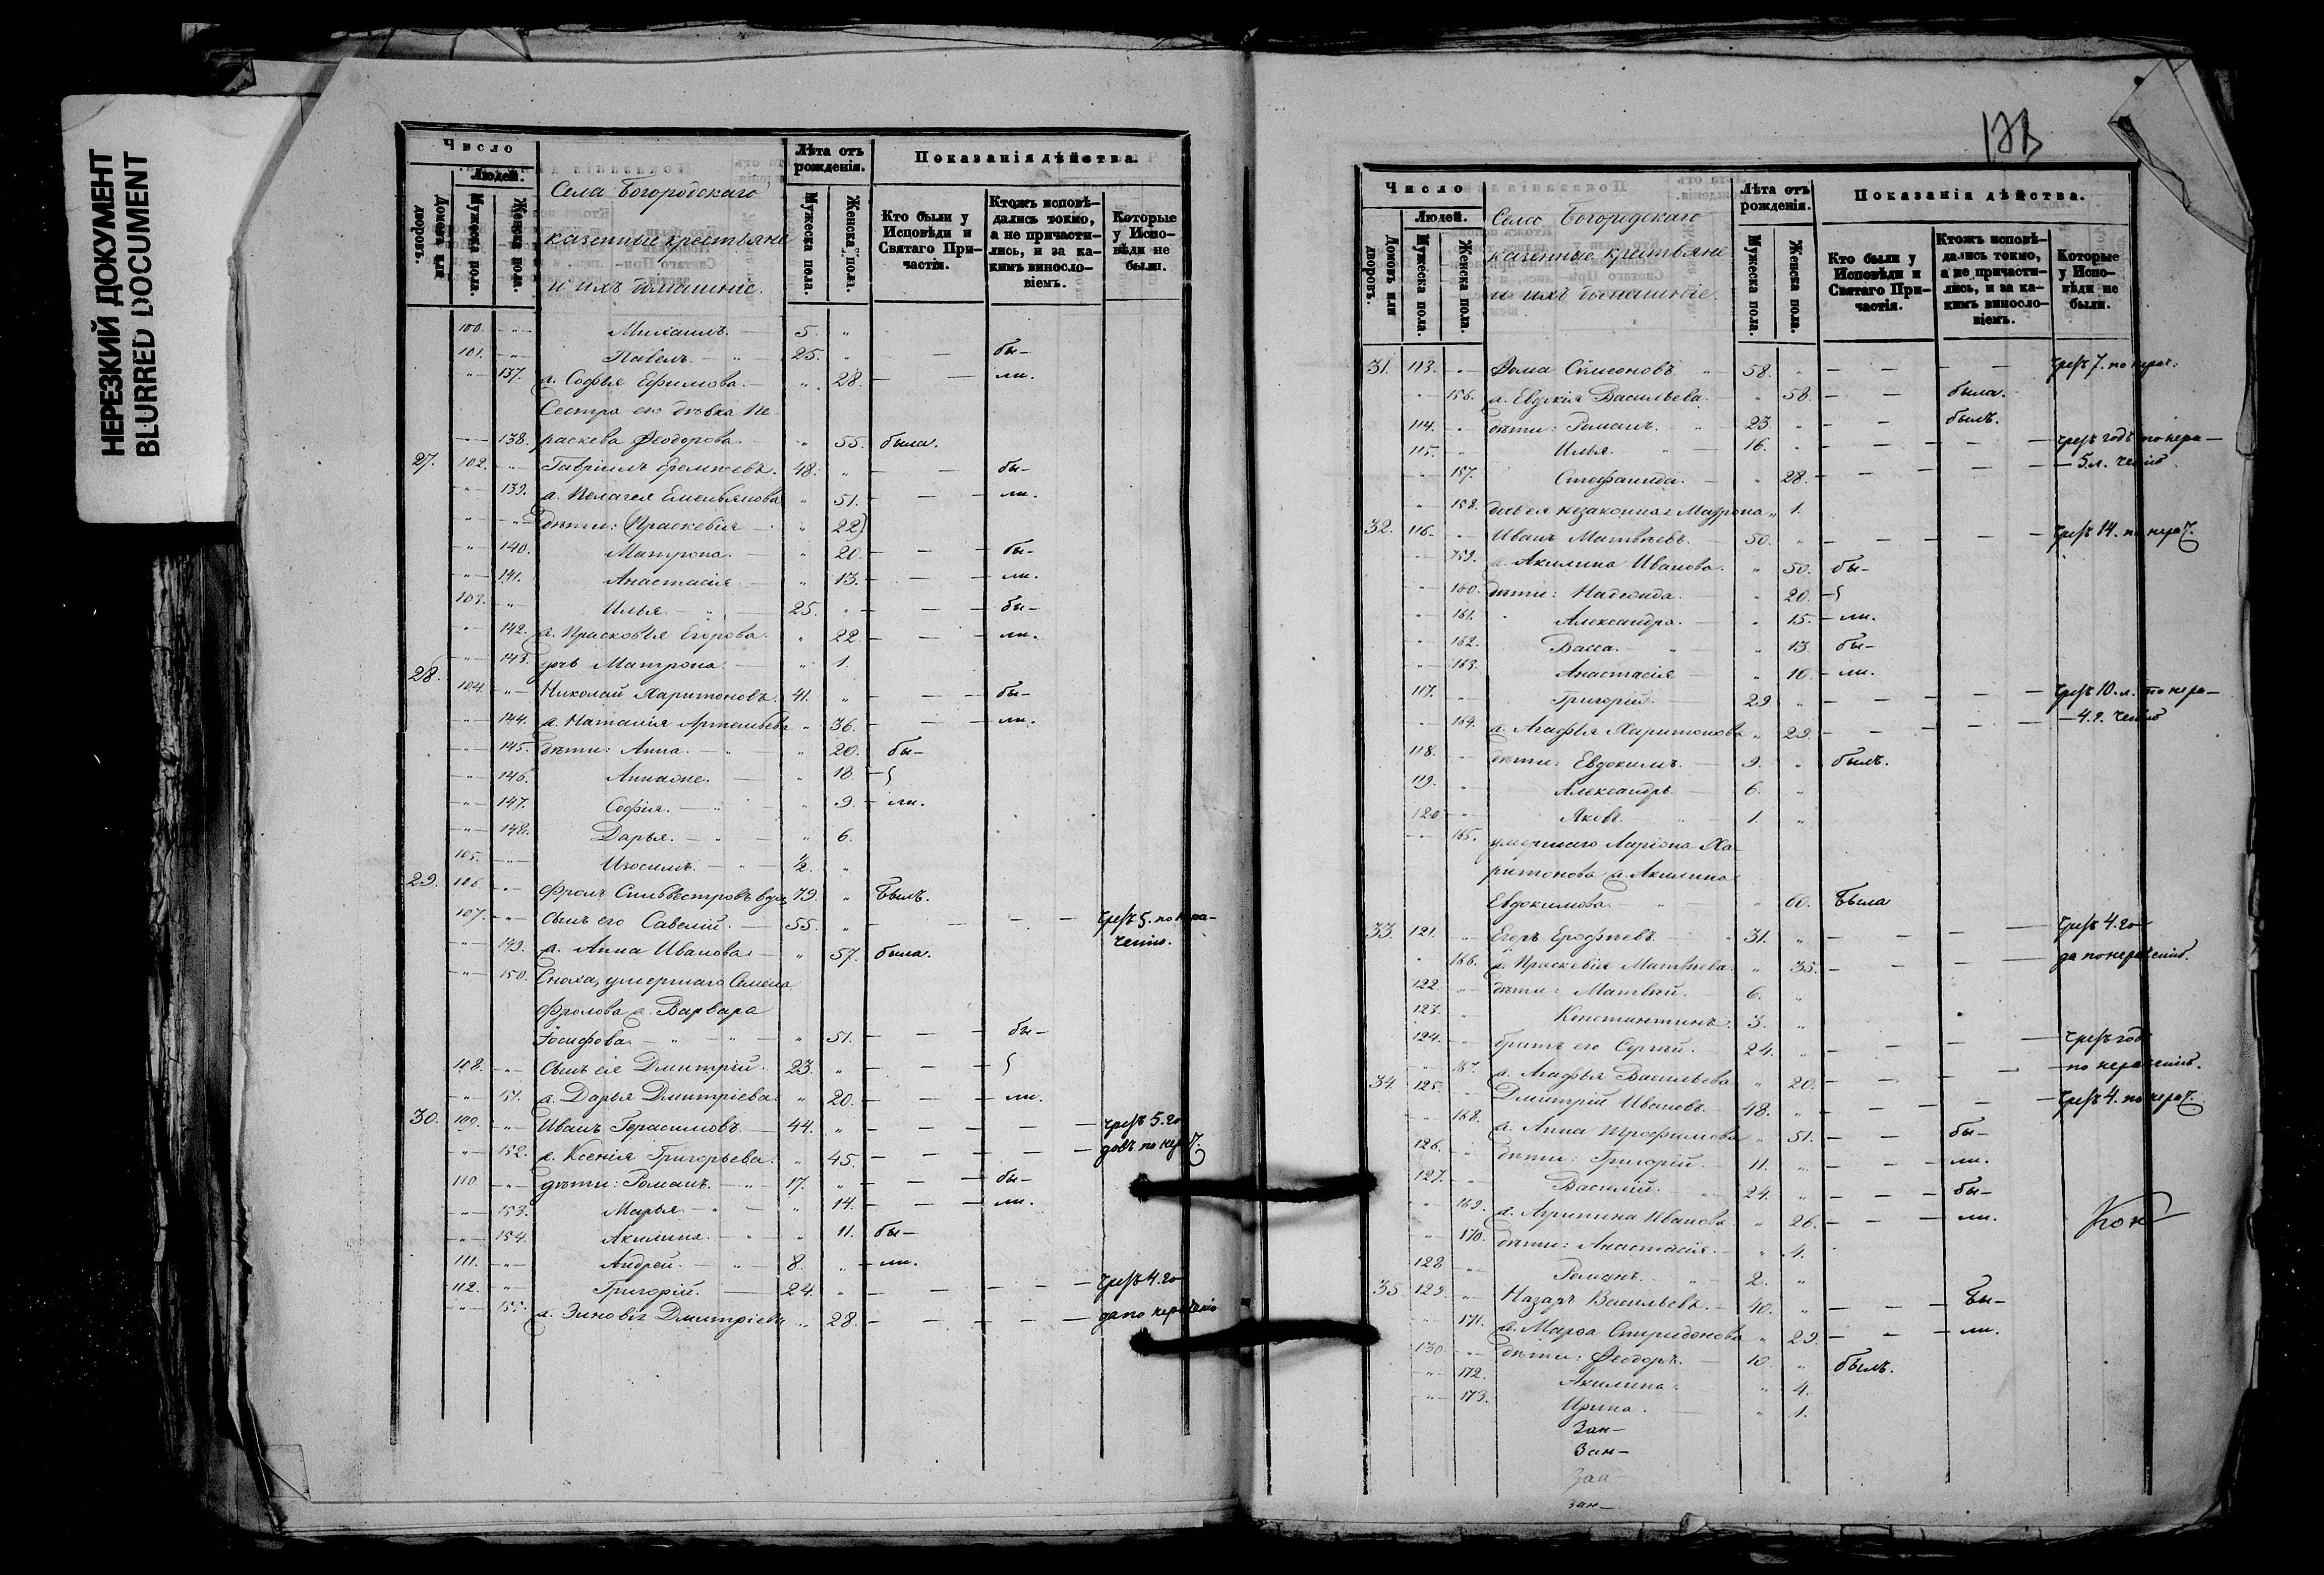 НЕРЕЗКИЙ ДОКУМЕНТ
BLURRED DOCUMENT
Число
Людей.
Домовъ или дворовъ.
Мужеска пола.
Женска пола.
Села Богородскаго
казенные крестьяне
и ихъ домашніе.
Лѣта отъ рожденія.
Мужеска пола.
Женска пола.
Показанія дѣйства.
Кто были у Исповѣди и Святаго Причастія.
Ктожъ исповѣдались токмо, а не причастились, и за какимъ винословіемъ.
Которые у Исповѣди не были.
100. - " - Михаилъ. 5. "
101. - " - Павелъ. - " - 25. " - бы-
" - 137. а. Софья Ефимова. - " 28. - - ли.
Сестра его дѣвка Пе-
" - 138. раскева Ѳеодорова. - " 55. была.
27. 102. - " - Гавріилъ 48. " - - бы-
" - 139. а. Пелагея Емельянова " 51. - - ли.
" - " - дѣти: (Праскевія - " 22)
" - 140. Матрона. - " 20. - - бы-
" - 141. Анастасія - " 13. - - ли.
103. - " Илья - " - 25. " - - бы-
" - 142. а. Прасковья Егорова. " 22. - - ли.
" - 143. дчь Матрона. - " 1.
28. 104. - " - Николай Харитоновъ. 41. " - - бы-
" - 144. а. Наталія Артемьева " 36. - - ли.
" - 145. дѣти: Анна. - " - " 20. бы-
" - 146. Анна оне. - " 18. - {
" - 147. Софія. - " - " 9. - ли.
" - 148. Дарья. - " - " 6.
105. - " - Изосимъ. - " - ½. "
29. 106. - " - Фролъ Сильвестровъ вдов 79. " Былъ.
107. - " - Сынъ его Савелій. - 55. " - - - чрезъ 5. по нера-
" - 149. а. Анна Иванова - " 57. была. ченію.
" - 150. Сноха, умершаго Семена
Фролова а. Варвара
Іосифова. - " - " - " 51. - - бы-
108. - " - Сынъ ея Дмитрій. 23. " - - {
" - 151. а. Дарья Дмитріева. " 20. - - ли.
30. 109. - " Иванъ Герасимовъ. - 44. " - - - чрезъ 5. го-
" - 152. а. Ксенія Григорьева. " 45. - - - довъ по нерач.
110 - " - дѣти: Романъ. - " - 17. " - - бы-
" - 153. Марья. - " - " 14. - - ли.
" - 154. Акилина. - " - " 11. бы-
111. - " - Андрей. - " - 8. " - ли.
112. - " - Григорій. - 24. " - - - чрезъ 4. го-
" - 155. а. Зиновія Дмитріева " 28. - - - да по нераченію
Число
Людей.
Домовъ или дворовъ.
Мужеска пола.
Женска пола.
Села Богородскаго
казенные крестьяне
и ихъ домашніе.
Лѣта отъ рожденія.
Мужеска пола.
Женска пола.
Показанія дѣйства.
Кто были у Исповѣди и Святаго Причастія.
Ктожъ исповѣдались токмо, а не причастились, и за какимъ винословіемъ.
Которые у Исповѣди не были.
31. 113. - Ѳома Симеоновъ " 58. " - - - чрезъ 7. по нерач.
" - 156. а. Евдокія Васильева. " 58. - - была.
114. - " дѣти: Романъ. " - 23. " - - былъ.
115. - " Илья. " - 16. " - - - чрезъ годъ по нера-
" - 157. Стефанида. - " 28. - - - - 5. л. ченію.
" - 158. дчь ея незаконная Матрона " 1.
32. 116. - " Иванъ Матвѣевъ. - 50. " - - - чрезъ 14. по нерач.
" - 159. а. Акилина Иванова. " 50. бы-
" - 160. дѣти: Надежда. - " 20. - {
" - 161. Александра. - " 15. - ли.
" - 162. Васса. - " - " 13. бы-
" - 163. Анастасія - " 10. - ли.
117. - " Григорій. - 29. " - - - чрезъ 10. л. по нера-
" - 164. а. Агафья Харитонова " 29. - - - - 4. г. ченію
118. - " дѣти: Евдокимъ. - 9. " былъ.
119. - " Александръ. - 6. "
120 - " Яковъ. - 1. "
" - 165. умершаго Ларіона Ха-
ритонова а. Акилина
Евдокимова. - " - " 60. Была
33. 121. - " Егоръ Ерофѣевъ. - 31. " - - - чрезъ 4. го-
" - 166. а. Праскевія Матвѣева. " 35. - - - да по нераченію.
122. - " дѣти: Матвѣй. - 6. "
123. - " Константинъ. - 3. "
124. - " братъ его Сергѣй. - 24. " - - - чрезъ годъ
" - 167. а. Агафья Васильева " 20. - - - - по нераченію.
34. 125. - " Дмитрій Ивановъ. - 48. " - - - чрезъ 4. по нерач.
" - 168. а. Анна Трофимова " 51. - - бы-
126. - " дѣти: Григорій. - 11. " - - ли.
127. - " Василій. - " 24. " - - бы-
" - 169. а. Агрипина Иванова. " 26. - - ли.
" - 170. дѣти: Анастасія. - " 4.
128 - " Романъ. - " 2. "
35. 129. - " Назаръ Васильевъ. - 40. " - - бы-
" - 171. а. Марѳа Спиридонова " 29. - - ли.
130. - " дѣти: Ѳеодоръ. - 10. " былъ.
" - 172. Акилина. - " 4.
" - 173. Ирина. - " 1.
Зан-
Зан-
Зан-
зан-